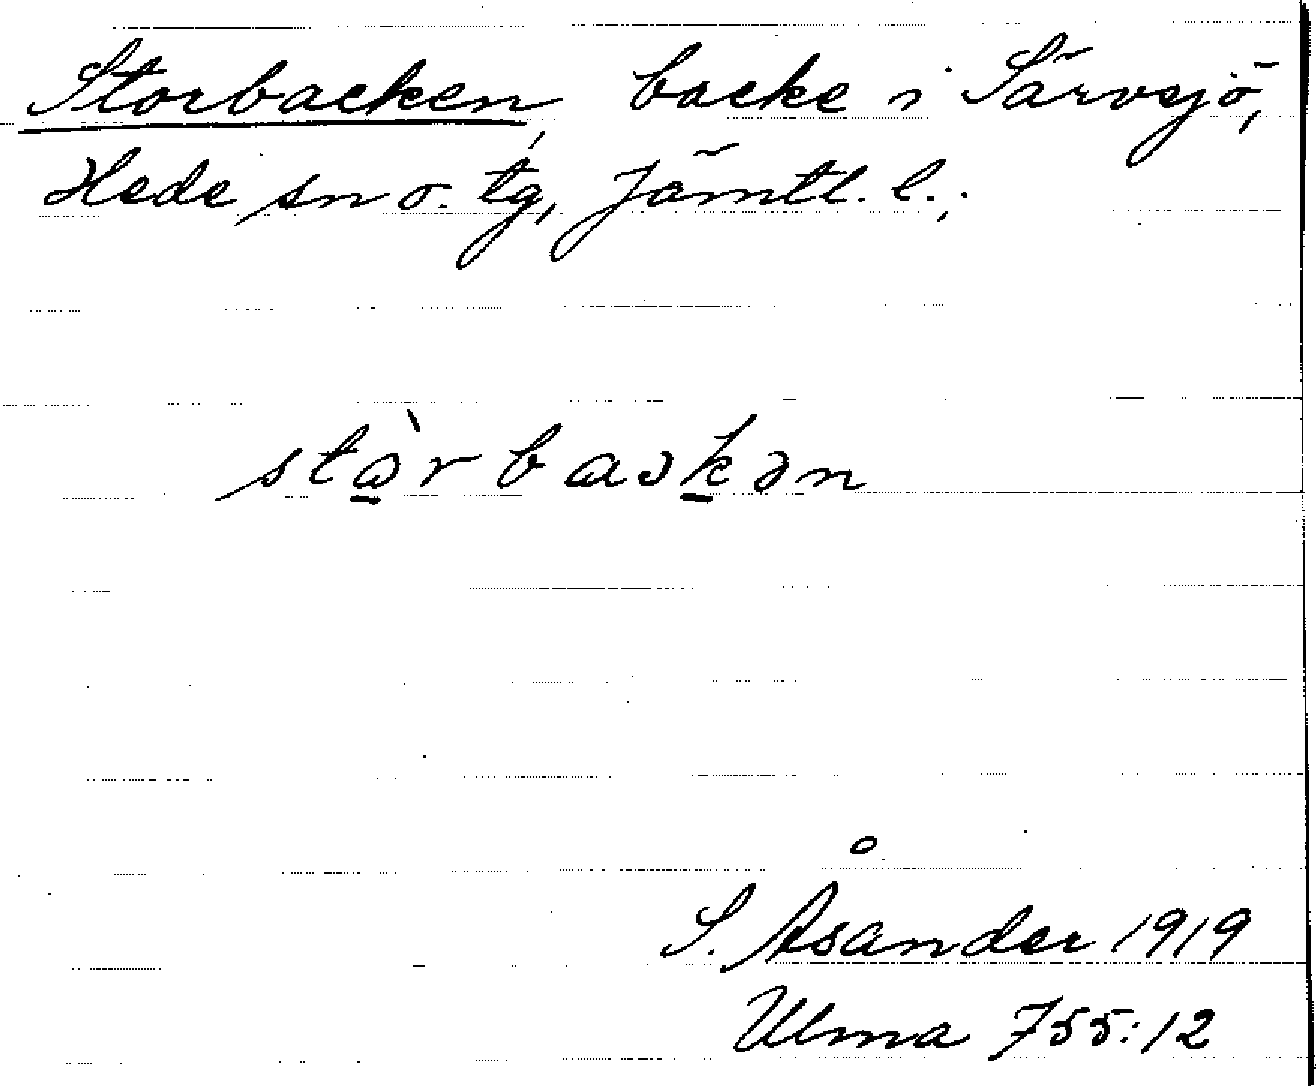 Storbacken, backe i Särvsjö,
Hede sn o. tg, Jämtl. l.;
S. Åsander 1919
Ulma 755:12